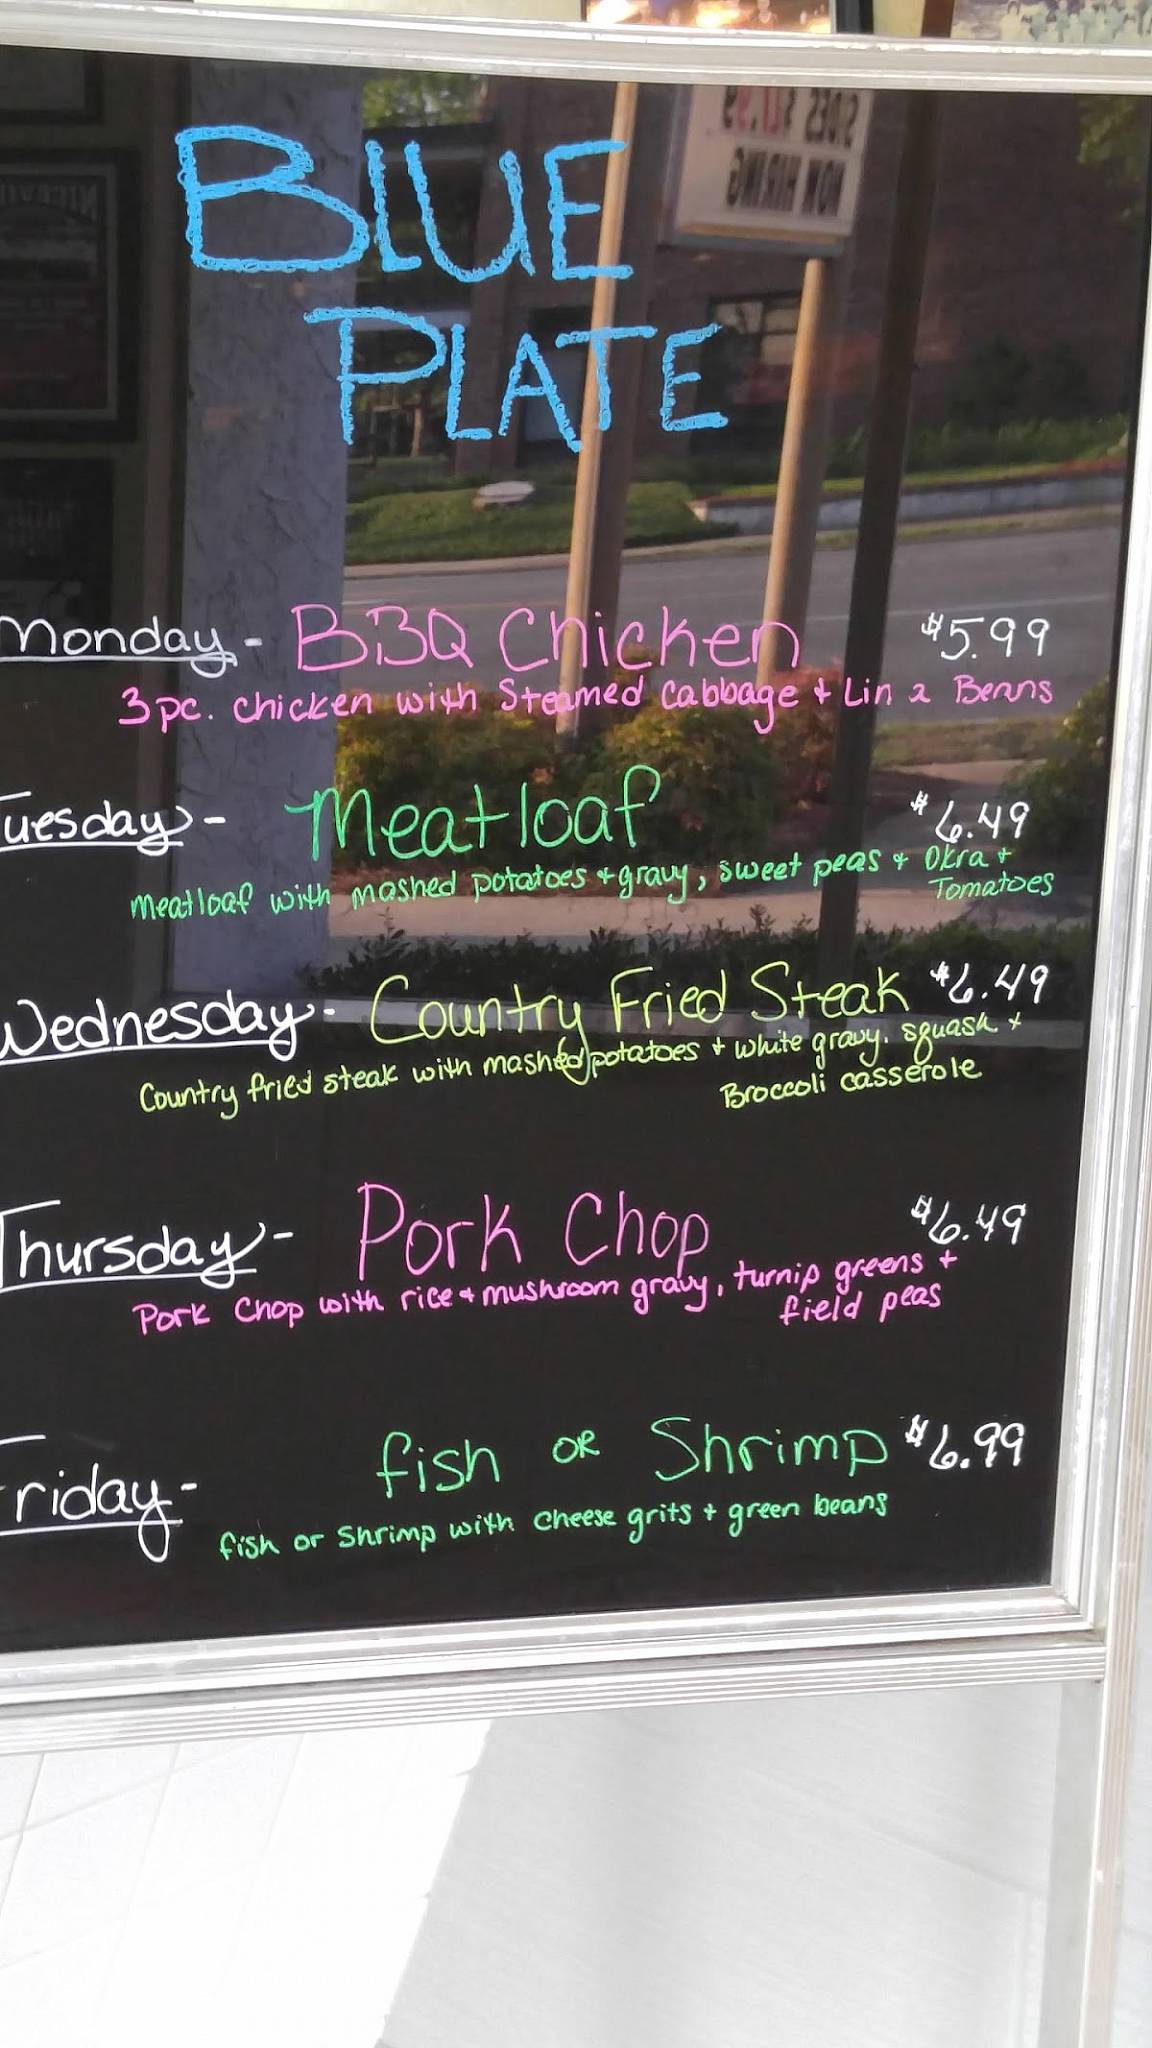 BLUE
PLATE
Monday - BBQ Chicken $5.99
3pc. chicken with Steamed Cabbage + Lima Beans
Tuesday - Meatloaf $6.49
Meatloaf with mashed potatoes + gravy, sweet peas + Okra +
Tomatoes
Wednesday - Country Fried Steak $6.49
Country fried steak with mashed potatoes + white gravy, squash +
Broccoli casserole
Thursday - Pork Chop $6.49
Pork Chop with rice + mushroom gravy, turnip greens +
field peas
Friday - fish OR Shrimp $6.99
fish or Shrimp with cheese grits + green beans
NOW HIRING